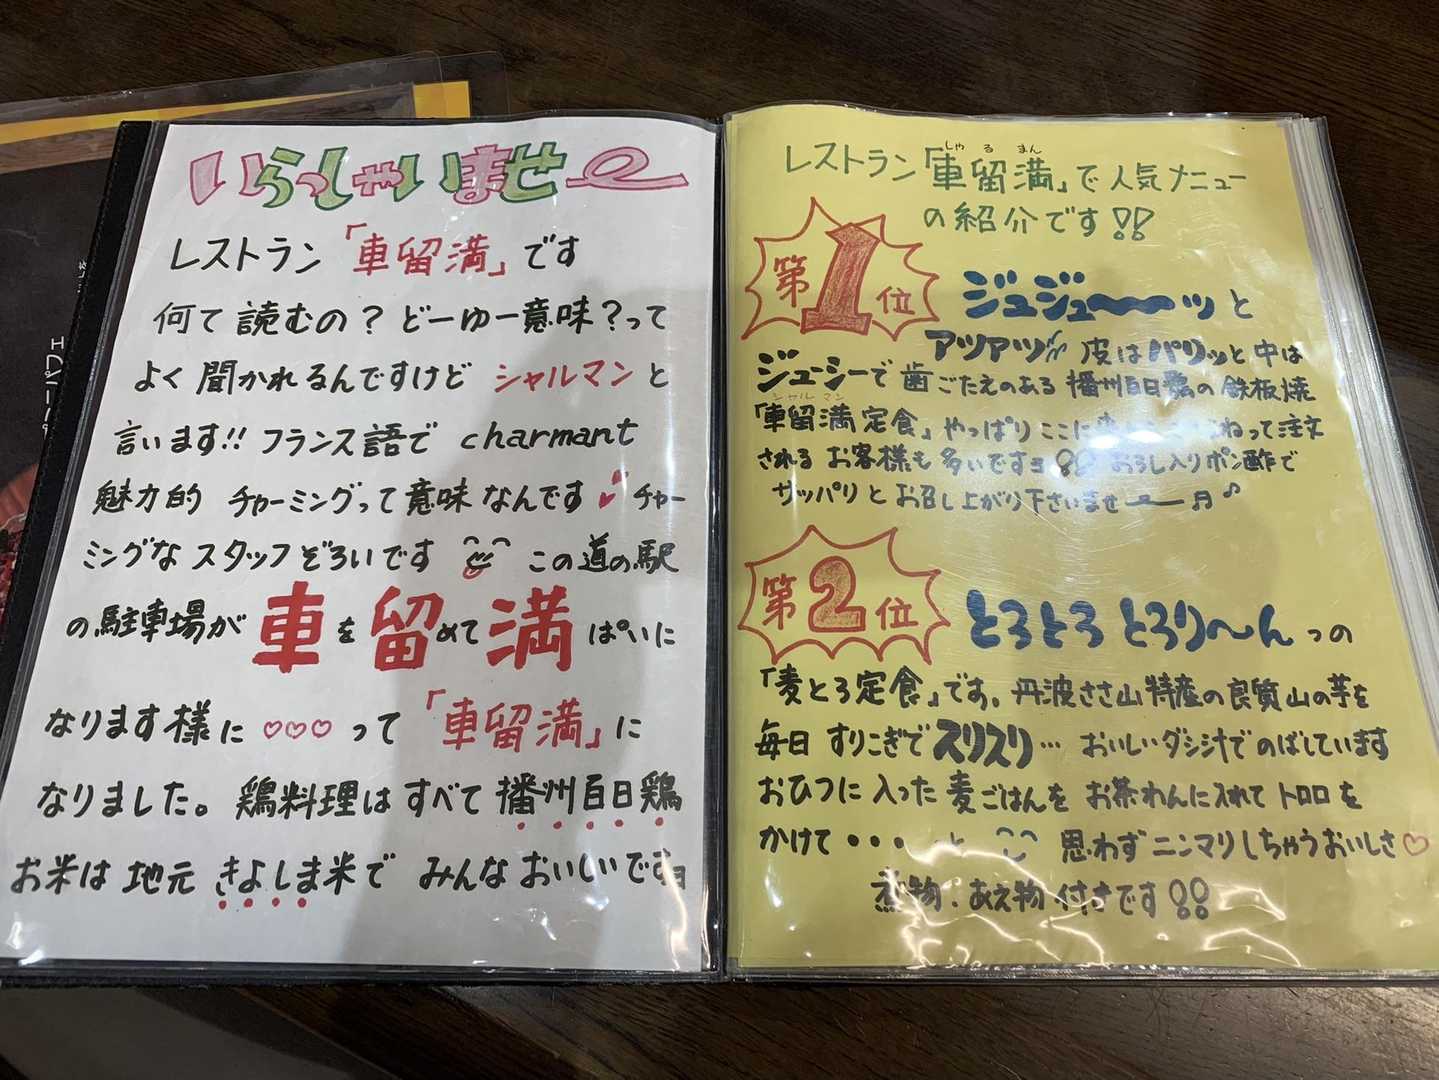 いらっしゃいませー
レストラン「車留満」です
何て読むの?どーゆー意味?って
よく聞かれるんですけど シャルマンと
言います!! フランス語で charmant
魅力的 チャーミングって意味なんです チャー
ミングな スタッフぞろいです この道の駅
の駐車場が 車を留めて満ぱいに
なります様に♡♡♡って「車留満」に
なりました。鶏料理はすべて播州百日鶏
お米は地元きよしま米で みんなおいしいですョ
しゃ る まん
レストラン「車留満」で人気メニュー
の紹介です!!
第1位 ジュジューーッと
アツアツ 皮はパリッと中は
ジューシーで歯ごたえのある播州百日鶏の鉄板焼
シャル マン
「車留満定食」やっぱりここに ねって注文
される お客様も多いですョ!! おろし入りポン酢で
サッパリと お召し上がり下さいませー♬♪
第2位 とろとろ とろり〜ん っの
「麦とろ定食」です。丹波ささ山特産の良質山の芋を
毎日 すりこぎでスリスリ… おいしいダシ汁でのばしています
おひつに入った麦ごはんを お茶わんに入れてトロロを
かけて・・・ と 思わずニンマリしちゃうおいしさ♡
煮物.あえ物付きです!!